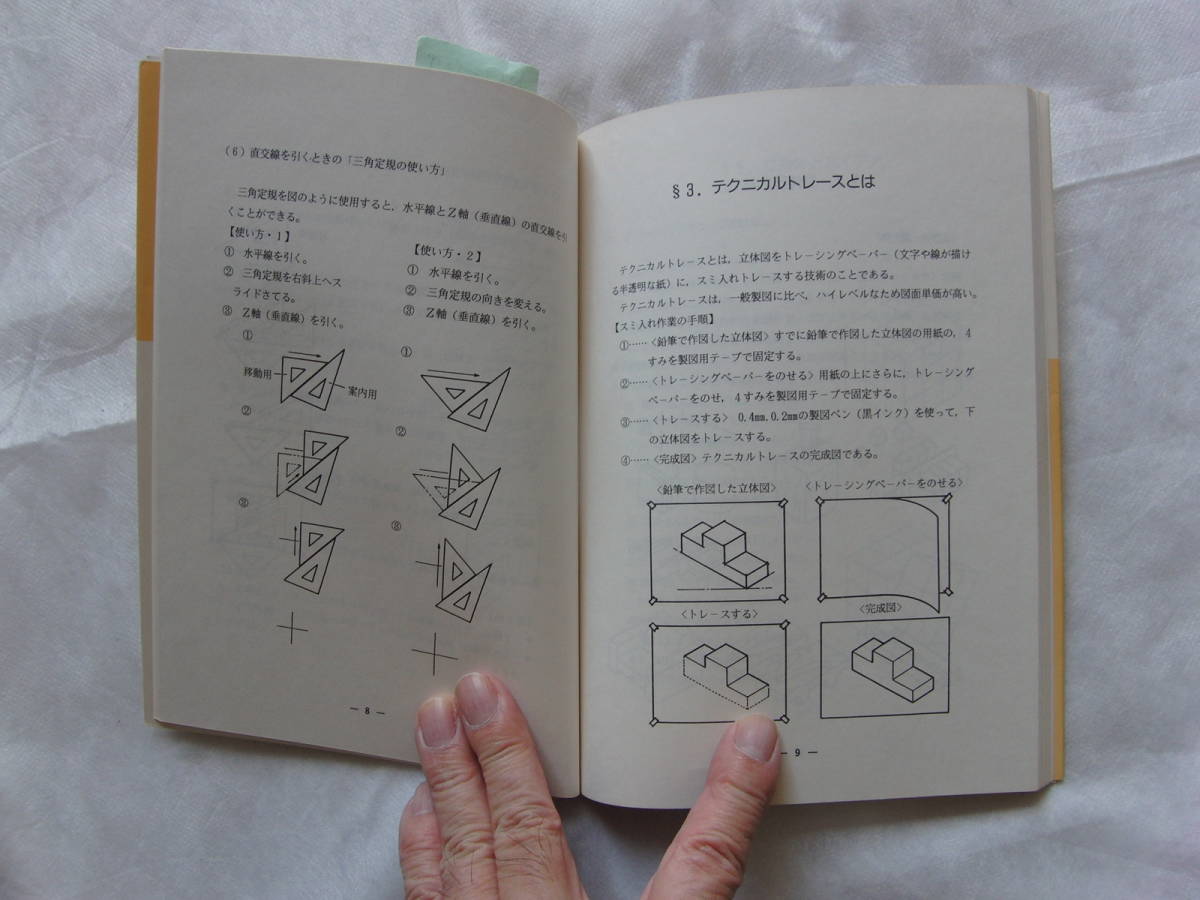 (6)直交線を引くときの「三角定規の使い方」
三角定規を図のように使用すると,水平線とZ軸(垂直線)の直交線を引
くことができる。
【使い方・1】
① 水平線を引く。
② 三角定規を右斜上へス
ライドさてる。
③ Z軸(垂直線)を引く。
①
移動用
案内用
②
③
【使い方・2】
① 水平線を引く。
② 三角定規の向きを変える。
③ Z軸(垂直線)を引く。
①
②
③
― 8 ―
§3.テクニカルトレースとは
テクニカルトレースとは,立体図をトレーシングペーパー(文字や線が描け
る半透明な紙)に,スミ入れトレースする技術のことである。
テクニカルトレースは,一般製図に比べ,ハイレベルなため図面単価が高い。
【スミ入れ作業の手順】
①……〈鉛筆で作図した立体図〉すでに鉛筆で作図した立体図の用紙の,4
すみを製図用テープで固定する。
②……〈トレーシングペーパーをのせる〉用紙の上にさらに,トレーシング
ペーパーをのせ,4すみを製図用テープで固定する。
③……〈トレースする〉0.4mm.0.2mmの製図ペン(黒インク)を使って,下
の立体図をトレースする。
④……〈完成図〉テクニカルトレースの完成図である。
〈鉛筆で作図した立体図〉
〈トレーシングペーパーをのせる〉
〈トレースする〉
〈完成図〉
― 9 ―